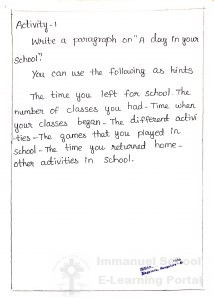 Activity-1
Write a paragraph on "A day in your
school".
You can use the following as hints
The time you left for school. The
number of classes you had - Time when
your classes began - The different activi
-ties - The games that you played in
school - The time you returned home -
other activities in school.
Immanuel School
E-Learning Portal